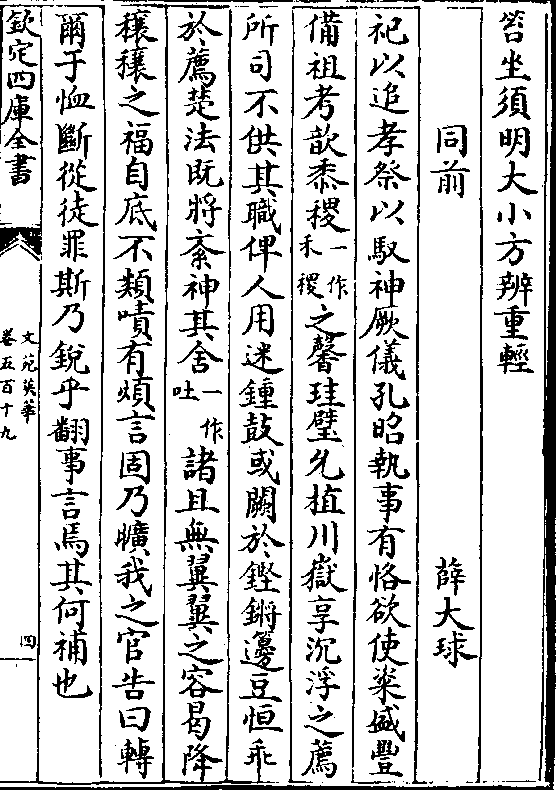 笞坐須明大小方辨重輕
同前　薛大球
祀以追孝祭以馭神厥儀孔昭執事有恪欲使粢盛豐
備祖考歆黍稷一作禾稷之馨珪璧允植川嶽享沉浮之薦
所司不供其職俾人用迷鍾鼓或闕於鏗鏘籩豆恒乖
於薦楚法既將紊神其舍一作吐諸且無翼翼之容曷降
穰穰之福自底不類嘖有煩言固乃曠我之官告曰轉
爾于恤斷從徒罪斯乃銳乎翻事言焉其何補也
欽定四庫全書
文苑英華
卷五百十九
四